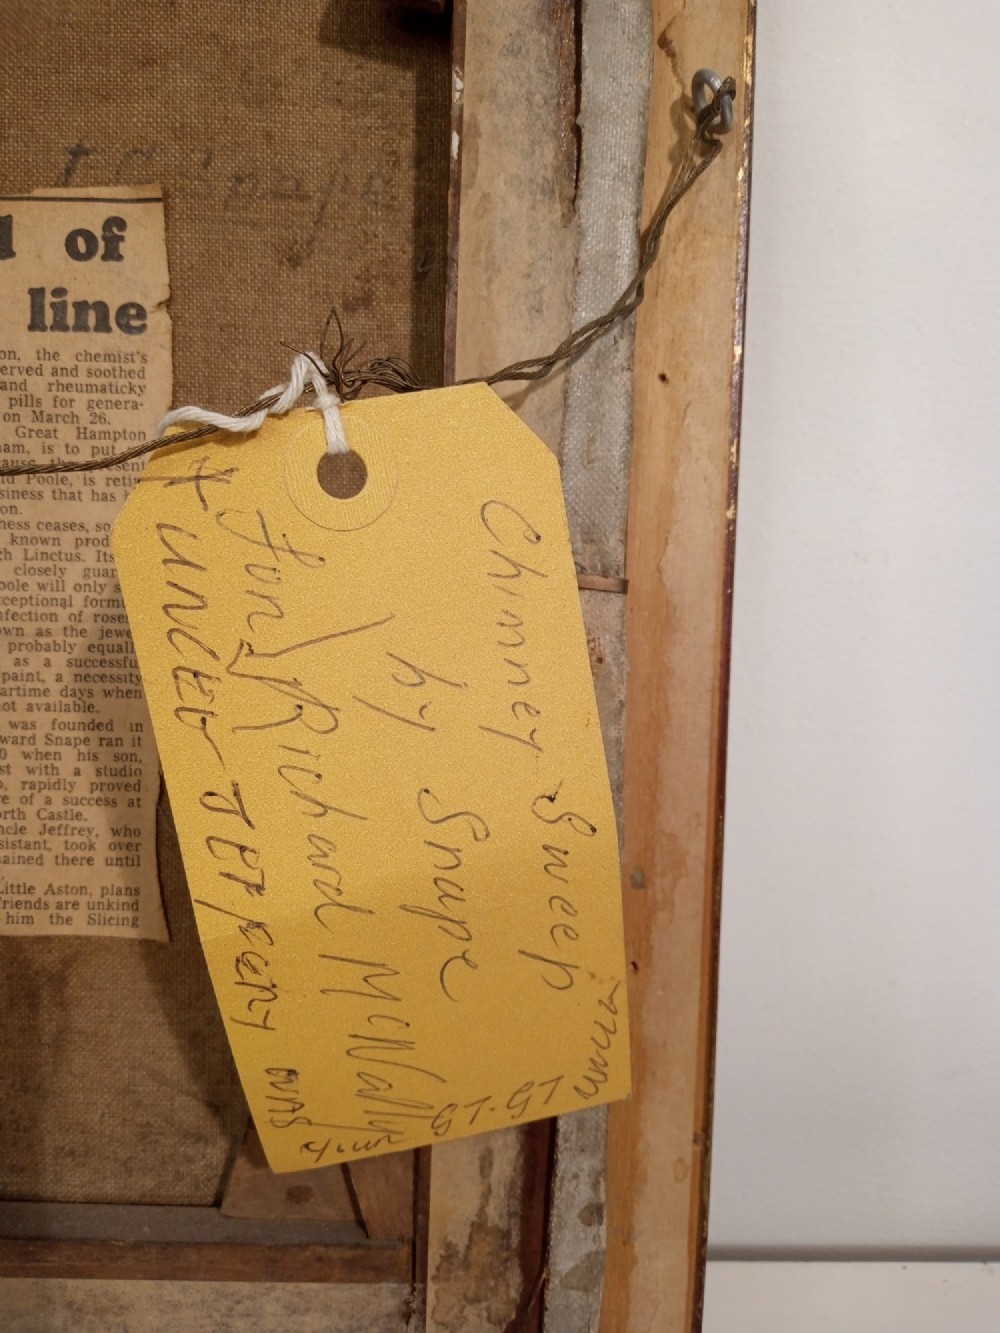 of
line
on, the chemist's
erved and soothed
and rheumaticky
pills for genera-
on March 26.
Great Hampton
ham, is to put
the present
Poole, is
siness that has
on.
ness ceases, so
known prod
Linctus. Its
closely guar
oole will only
xceptional form
nfection of rose
own as the jewe
probably equall
as a successfu
paint, a necessity
artime days when
not available.
was founded in
ward Snape ran it
0 when his son,
st with a studio
, rapidly proved
re of a success at
orth Castle.
ncle Jeffrey, who
sistant, took over
ained there until
Little Aston, plans
friends are unkind
him the Slicing
Chimney Sweep
by Snape
Richard McNally
UNCLE JEFFERY WAS